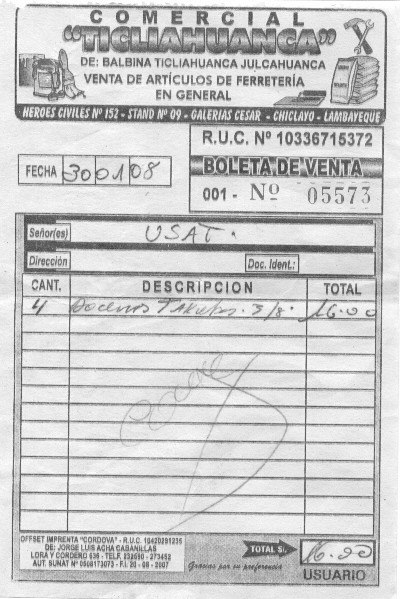 COMERCIAL
"TICLIAHUANCA"
DE: BALBINA TICLIAHUANCA JULCAHUANCA
VENTA DE ARTÍCULOS DE FERRETERÍA
EN GENERAL
HEROES CIVILES Nº 152 - STAND Nº 09 - GALERIAS CESAR - CHICLAYO - LAMBAYEQUE
R.U.C. Nº 10336715372
BOLETA DE VENTA
001 - Nº 05573
FECHA 30 01 08
Señor(es) USAT.
Dirección Doc. Ident.:
CANT. DESCRIPCION TOTAL
4 Docenas 3/8. 16.00
OFFSET IMPRENTA "CORDOVA" - R.U.C. 10420291235
DE: JORGE LUIS ACHA CABANILLAS
LORA Y CORDERO 636 - TELF. 233590 - 273452
AUT. SUNAT Nº 0508173073 - F.I. 20 - 08 - 2007
Gracias por su preferencia
TOTAL S/. 16.00
USUARIO